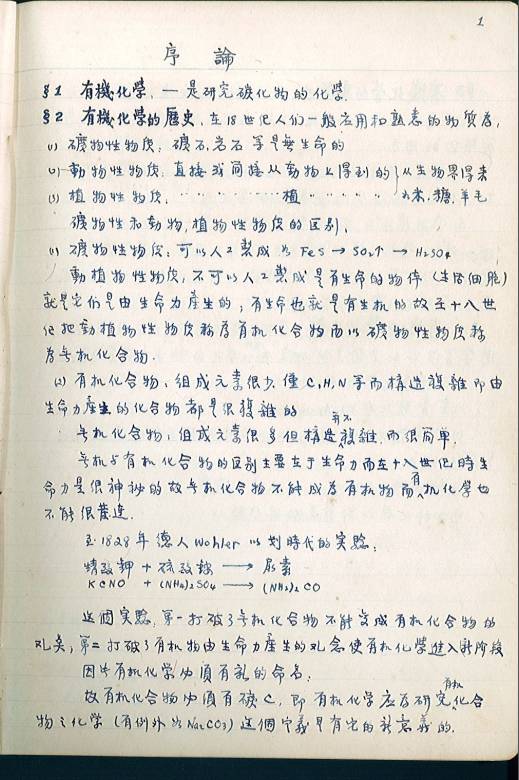 1
序論
§1 有機化學,—是研究碳化物的化學.
§2 有機化學的歷史,在18世纪人们一般应用和熟悉的物质为,
(1) 礦物性物质: 礦石,岩石 等是無生命的
(2) 動物性物质: 直接或间接从动物上得到的}从生物界得来
(3) 植物性物质, 〃 〃 〃 植 〃 〃 〃 糖,羊毛
礦物性和动物,植物性物质的区别,
(1) 礦物性物质: 可以人工製成 为 FeS → SO₂↑ → H₂SO₄
動植物性物质: 不可以人工製成是有生命的物体 (生活细胞)
就是它们是由生命力產生的, 有生命也就是有生机的故至十八世
纪把動植物性物质称為有机化合物而以礦物性物质称
為无机化合物.
(2) 有机化合物: 组成元素很少,僅C,H,N等而構造複雜 即由
生命力產生的化合物都是很複雜的
无机化合物: 组成元素很多但構造並不複雜 而很简单.
无机与有机化合物的区别主要在于生命力而在十八世纪時生
命力是很神秘的故无机化合物不能成為有机物而有机化學也
不能很發達.
至1828年 德人 Wohler 以划時代的实验:
KCNO + (NH₄)₂SO₄ → (NH₂)₂CO
氰酸钾 + 硫酸铵 → 尿素
这個实驗,第一打破了无机化合物不能变成有机化合物的
观念,第二打破了有机物由生命力產生的观念使有机化學進入新阶段
因此有机化学必須有新的命名:
故有机化合物必須有碳C, 即有机化学应為研究有机化合
物之化学 (有例外为Na₂CO₃) 这個定義是有它的新意義的.